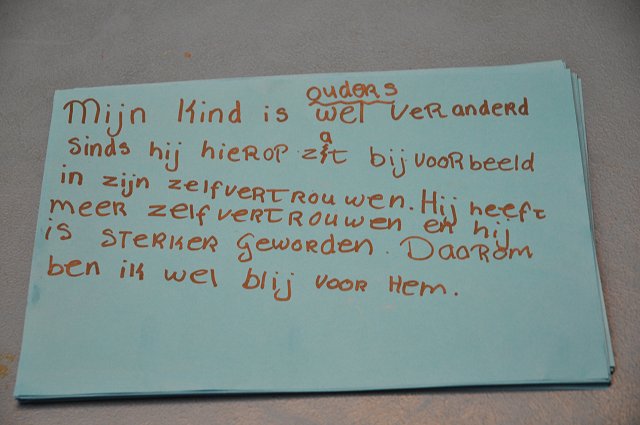 ouders
Mijn kind is wel veranderd
sinds hij hierop zat bijvoorbeeld
in zijn zelfvertrouwen. Hij heeft
meer zelfvertrouwen en hij
is sterker geworden. Daarom
ben ik wel blij voor hem.